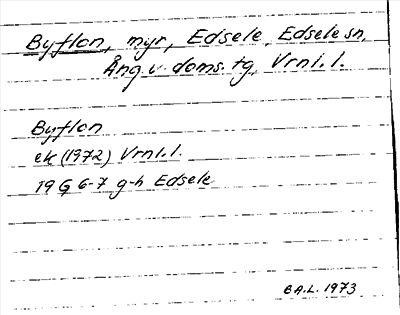 Byflon, myr, Edsele, Edsele sn,
Ång. v. doms. tg, Vrnl. l.
Byflon
ek (1972) Vrnl. l.
19 G 6-7 g-h Edsele
B.A.L. 1973